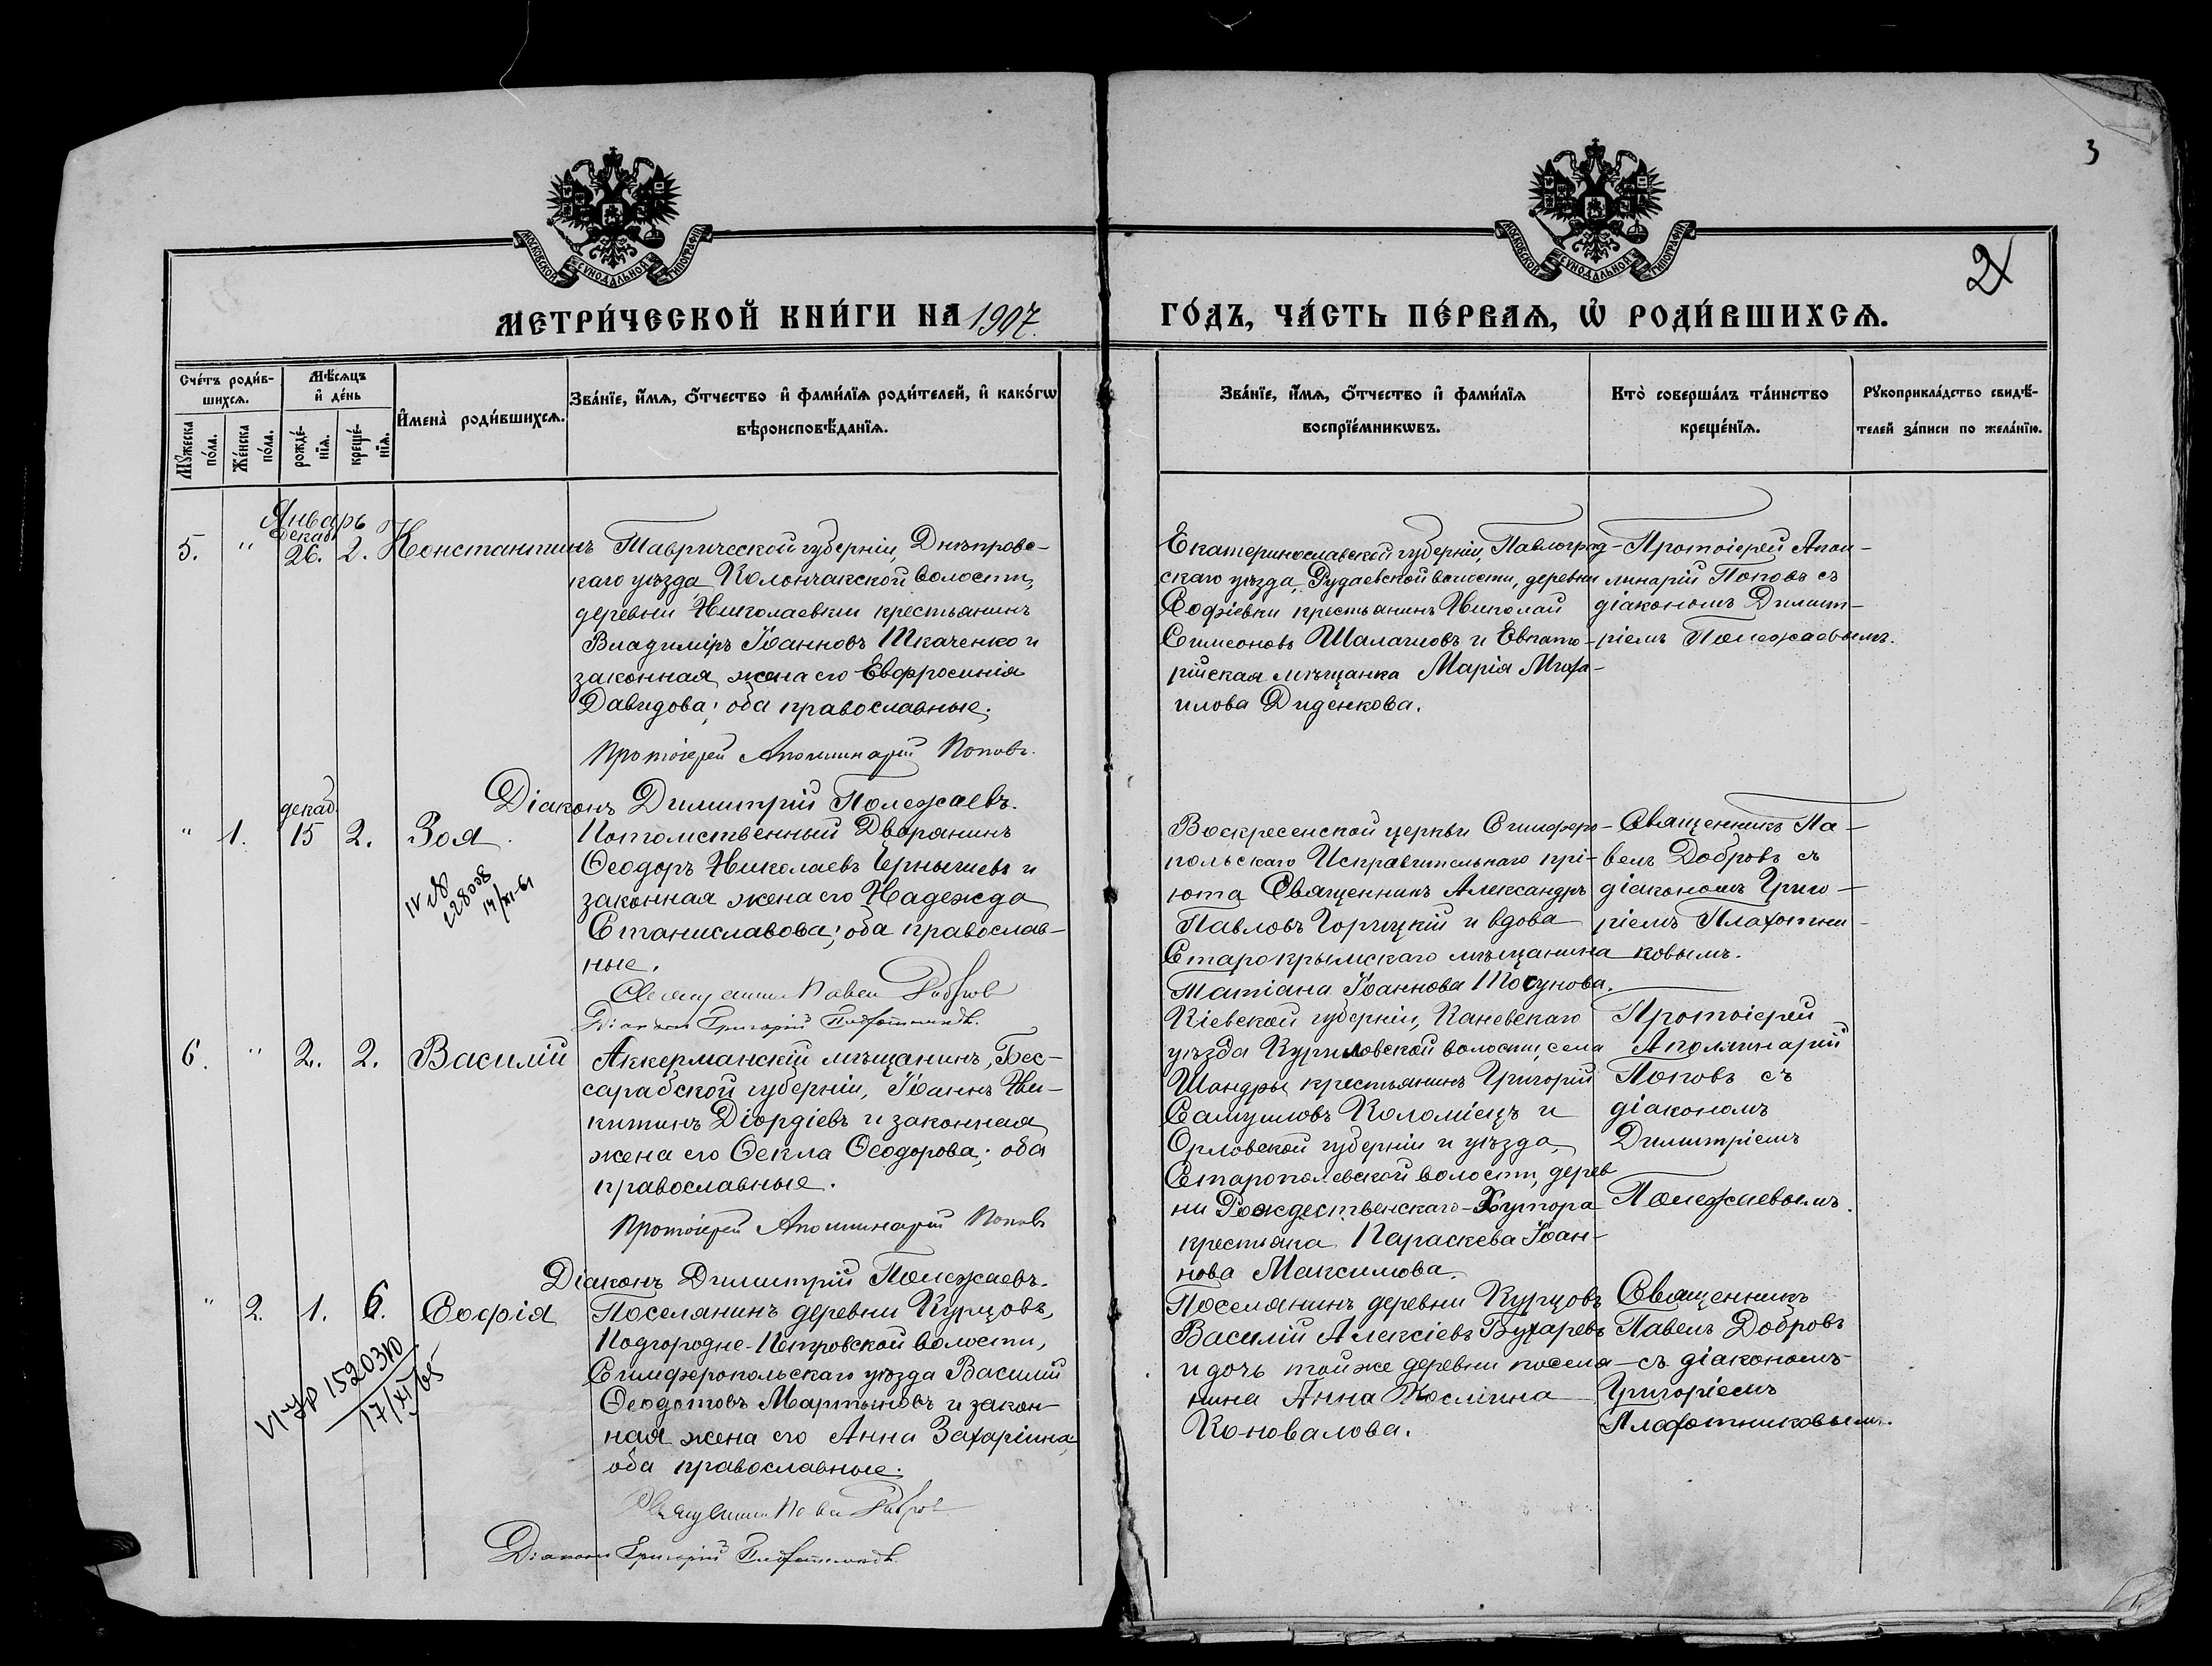 3
МОСКОВСКОЙ СѴНОДАЛЬНОЙ ТИПОГРАФІИ
МОСКОВСКОЙ СѴНОДАЛЬНОЙ ТИПОГРАФІИ
2
МЕТРИ́ЧЕСКОЙ КНИ́ГИ НА 1907.
ГО́ДЪ, ЧА́СТЬ ПЕ́РВАѦ, Ѡ҆ РОДИ́ВШИХСѦ.
Сче́тъ роди́в-
шихсѧ.
Мꙋ́жеска по́ла.
Же́нска по́ла.
Мѣ́сѧцъ и҆ де́нь
рожде́-нїѧ.
креще́-нїѧ.
И҆мена̀ роди́вшихсѧ.
Зва́нїе, и҆́мѧ, ѻ҆́тчество и҆ фами́лїѧ роди́телей, и҆ како́гѡ
вѣроисповѣ́данїѧ.
Зва́нїе, и҆́мѧ, ѻ҆́тчество и҆ фами́лїѧ
воспрїе́мникѡвъ.
Кто̀ соверша́лъ та́инство
креще́нїѧ.
Рꙋкоприкла́дство свидѣ́-
телей за́писи по жела́нїю.
Январь
5. " Декаб. 26. 2. Константинъ
Таврической губерніи, Днѣпровс-
каго уѣзда, Колончакской волости,
деревни Николаевки крестьянинъ
Владиміръ Іоанновъ Ткаченко и
законная жена его Евфросинія
Давидова; оба православные.
Протоіерей Аполлинарій Поповъ.
Діаконъ Димитрій Полежаевъ.
Екатеринославской губерніи, Павлоград-
скаго уѣзда, Рудаевской волости, деревни
Софіевки крестьянинъ Николай
Симеоновъ Шалагиовъ и Евпато-
рійская мѣщанка Марія Миха-
илова Диденкова.
Протоіерей Апол-
линарій Поповъ съ
діакономъ Димит-
ріемъ Полежаевымъ.
" 1. декаб. 15 2. Зоя.
14/XI-61
Потомственный Дворянинъ
Ѳеодоръ Николаевъ Чернышевъ и
законная жена его Надежда
Станиславова; оба православ-
ные.
Священникъ Павелъ Добровъ
Діаконъ Григорій Плахотниковъ.
Воскресенской церкви Симферо-
польскаго Исправительнаго прі-
юта Священникъ Александръ
Павловъ Горицкій и вдова
Старокрымскаго мѣщанина
Татіана Іоаннова Посунова.
Священникъ Па-
велъ Добровъ съ
діакономъ Григо-
ріемъ Плахотни-
ковымъ.
6. " 2. 2. Василій
Аккерманскій мѣщанинъ, Бес-
сарабской губерніи, Іоаннъ Ни-
китинъ Діордіевъ и законная
жена его Ѳекла Ѳеодорова; оба
православные.
Протоіерей Аполлинарій Поповъ
Діаконъ Димитрій Полежаевъ.
Кіевской губерніи, Каневскаго
уѣзда Куриловской волости, села
Шандры крестьянинъ Григорій
Самуиловъ Коломіецъ и
Орловской губерніи и уѣзда,
Старополевской волости, дерев
ни Рождественскаго-Хутора
крестьянка Параскева Іоан-
нова Максимова.
Протоіерей
Аполлинарій
Поповъ съ
діакономъ
Димитріемъ
Полежаевымъ.
" 2. 1. 6. Софія
VI-УР 152031
17/XI/65
Поселянинъ деревни Курцовъ,
Подгородне-Петровской волости,
Симферопольскаго уѣзда Василій
Ѳеодотовъ Мартыновъ и закон-
ная жена его Анна Захаріина,
оба православные.
Священникъ Павелъ Добровъ
Діаконъ Григорій Плахотниковъ.
Поселянинъ деревни Курцовъ
Василій Алексіевъ Бухаревъ
и дочь той же деревни поселя-
нина Анна Космина
Коновалова.
Священникъ
Павелъ Добровъ
съ діакономъ
Григоріемъ
Плахотниковымъ.